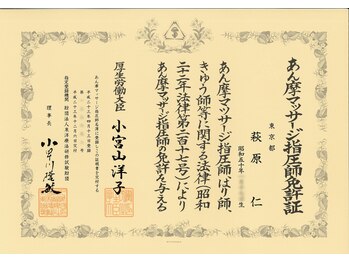 あん摩マッサージ指圧師免許証
東京都
萩原 仁
昭和五十年
生
あん摩マッサージ指圧師、はり師、
きゅう師等に関する法律(昭和
二十二年法律第二百十七号)により
あん摩マッサージ指圧師の免許を与える
厚生労働大臣 小宮山洋子
指定登録機関 財団法人東洋療法研修試験財団
理事長